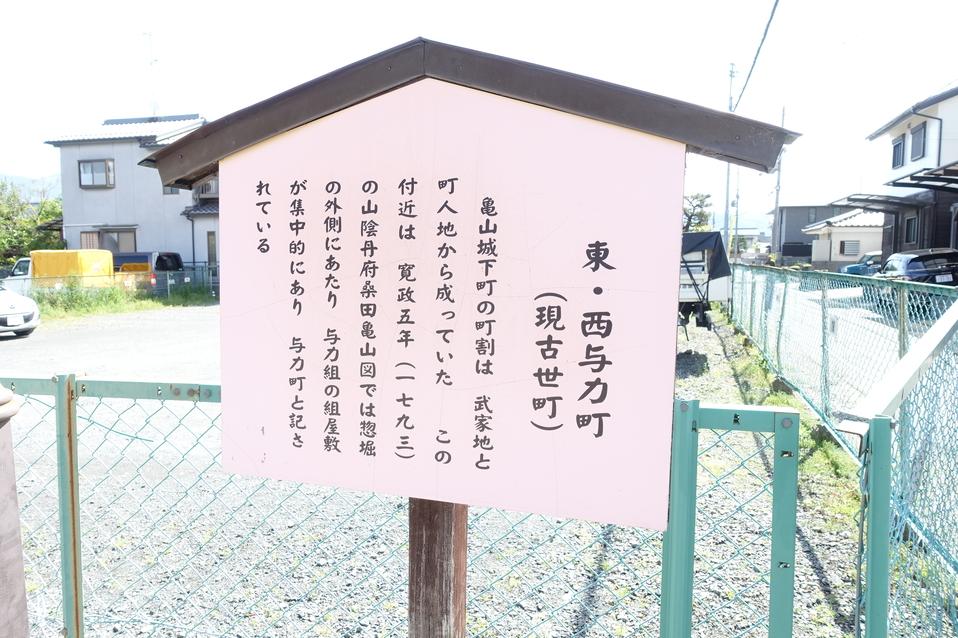 東・西与力町
（現古世町）
亀山城下町の町割は　武家地と
町人地から成っていた　この
付近は　寛政五年（一七九三）
の山陰丹府桑田亀山図では惣堀
の外側にあたり　与力組の組屋敷
が集中的にあり　与力町と記さ
れている